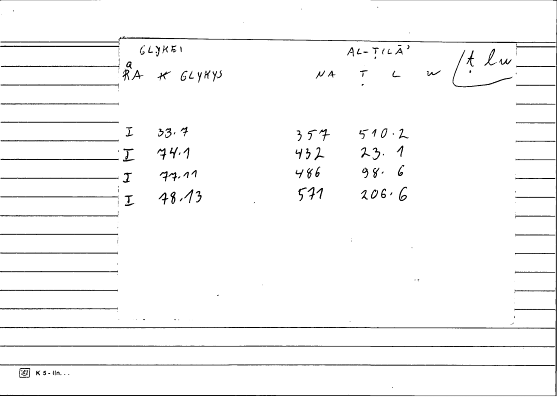 GLYKEI AL-ṬILĀʾ
RA K GLYKYS NA Ṭ L W ṭ l w
I 33.7 357 510.2
I 74.1 432 23.1
I 77.11 486 98.6
I 78.13 571 206.6
K 5 - lin...